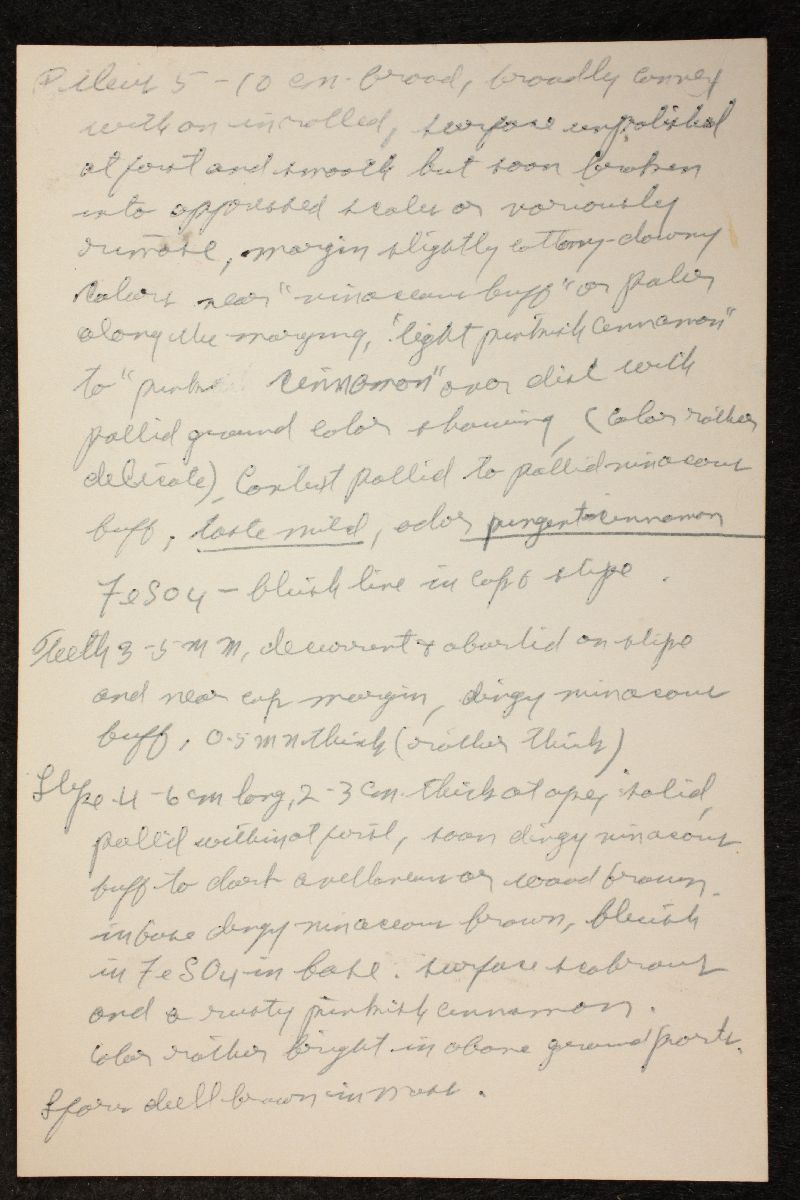 Pileus 5-10 cm broad, broadly convex
with an inrolled, surface unpolished
at first and smooth but soon broken
into appressed scales or variously
rimose, margin slightly cottony-downy
colors near "vinaceous buff" or paler
along the margins, "light pinkish cinnamon"
to "pinkish cinnamon" over disk with
pallid ground color showing, (color rather
delicate), Context pallid to pallid vinaceous
buff, taste mild, odor pungent-cinnamon
FeSO4 - bluish line in cap & stipe.
Teeth 3-5 mm, decurrent & aborted on stipe
and near cap margin, dingy vinaceous
buff, 0.5 mm thick (rather thick)
Stipe 4-6 cm long, 2-3 cm thick at apex, solid,
pallid within at first, soon dingy vinaceous
buff to dark avellaneous or wood brown.
in base dingy vinaceous brown, bluish
in FeSO4 in base. surface scabrous
and a rusty pinkish cinnamon.
Color rather bright in above ground parts.
Spores dull brown in mass.